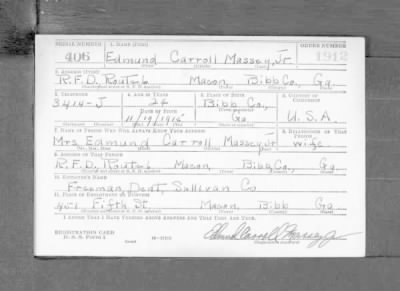 SERIAL NUMBER 1. NAME (Print) ORDER NUMBER
406 Edmund Carroll Massey, Jr. 1912
2. ADDRESS (Print)
R.F.D. Route 6 Macon, Bibb Co., Ga.
3. TELEPHONE 4. AGE IN YEARS 5. PLACE OF BIRTH 6. COUNTRY OF CITIZENSHIP
3414-J Bibb Co.,
DATE OF BIRTH
11/19/1915 Ga. U.S.A.
7. NAME OF PERSON WHO WILL ALWAYS KNOW YOUR ADDRESS 8. RELATIONSHIP OF THAT PERSON
Mrs. Edmund Carroll Massey, Jr. wife
9. ADDRESS OF THAT PERSON
R.F.D. Route 6 Macon, Bibb Co., Ga.
10. EMPLOYER'S NAME
Freeman, Dent, Sullivan Co.
11. PLACE OF EMPLOYMENT OR BUSINESS
Fifth St. Macon, Bibb Ga.
I AFFIRM THAT I HAVE VERIFIED ABOVE ANSWERS AND THAT THEY ARE TRUE.
REGISTRATION CARD
D. S. S. Form 1
Edmund Carroll Massey Jr.